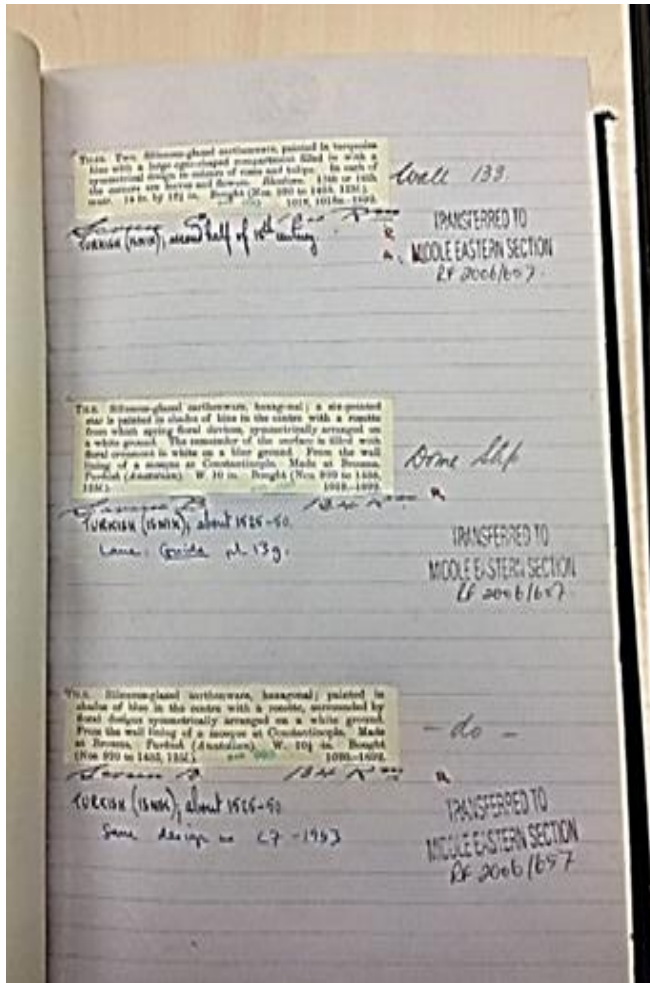 TILES. Two. Siliceous-glazed earthenware, painted in turquoise
blue with a large ogee-shaped compartment filled in with a
symmetrical design in colours of roses and tulips. In each of
the corners are leaves and flowers.
Bought (Nos. 920 to 1435, 125l.).
1018, 1018a.-1892.
Wall 133
TURKISH (ISNIK), second half of 16th century.
TRANSFERRED TO
MIDDLE EASTERN SECTION
RF 2006/657
TILE. Siliceous-glazed earthenware, hexagonal; a six-pointed
star is painted in shades of blue in the centre with a rosette
from which spring floral devices, symmetrically arranged on
a white ground. The remainder of the surface is filled with
floral ornament in white on a blue ground. From the wall
lining of a mosque at Constantinople. Made at Broussa.
Turkish (Anatolian). W. 10 in. Bought (Nos. 920 to 1435,
125l.).
Dome Slip
TURKISH (ISNIK), about 1525-50.
Lane: Guide pl. 13g.
TRANSFERRED TO
MIDDLE EASTERN SECTION
RF 2006/657
TILE. Siliceous-glazed earthenware, hexagonal; painted in
shades of blue in the centre with a rosette, surrounded by
floral designs symmetrically arranged on a white ground.
From the wall lining of a mosque at Constantinople. Made
at Broussa. Turkish (Anatolian). W. 10¼ in. Bought
(Nos 920 to 1435, 125l.).
- do -
TURKISH (ISNIK), about 1525-50
Same design as C7-1953
TRANSFERRED TO
MIDDLE EASTERN SECTION
RF 2006/657